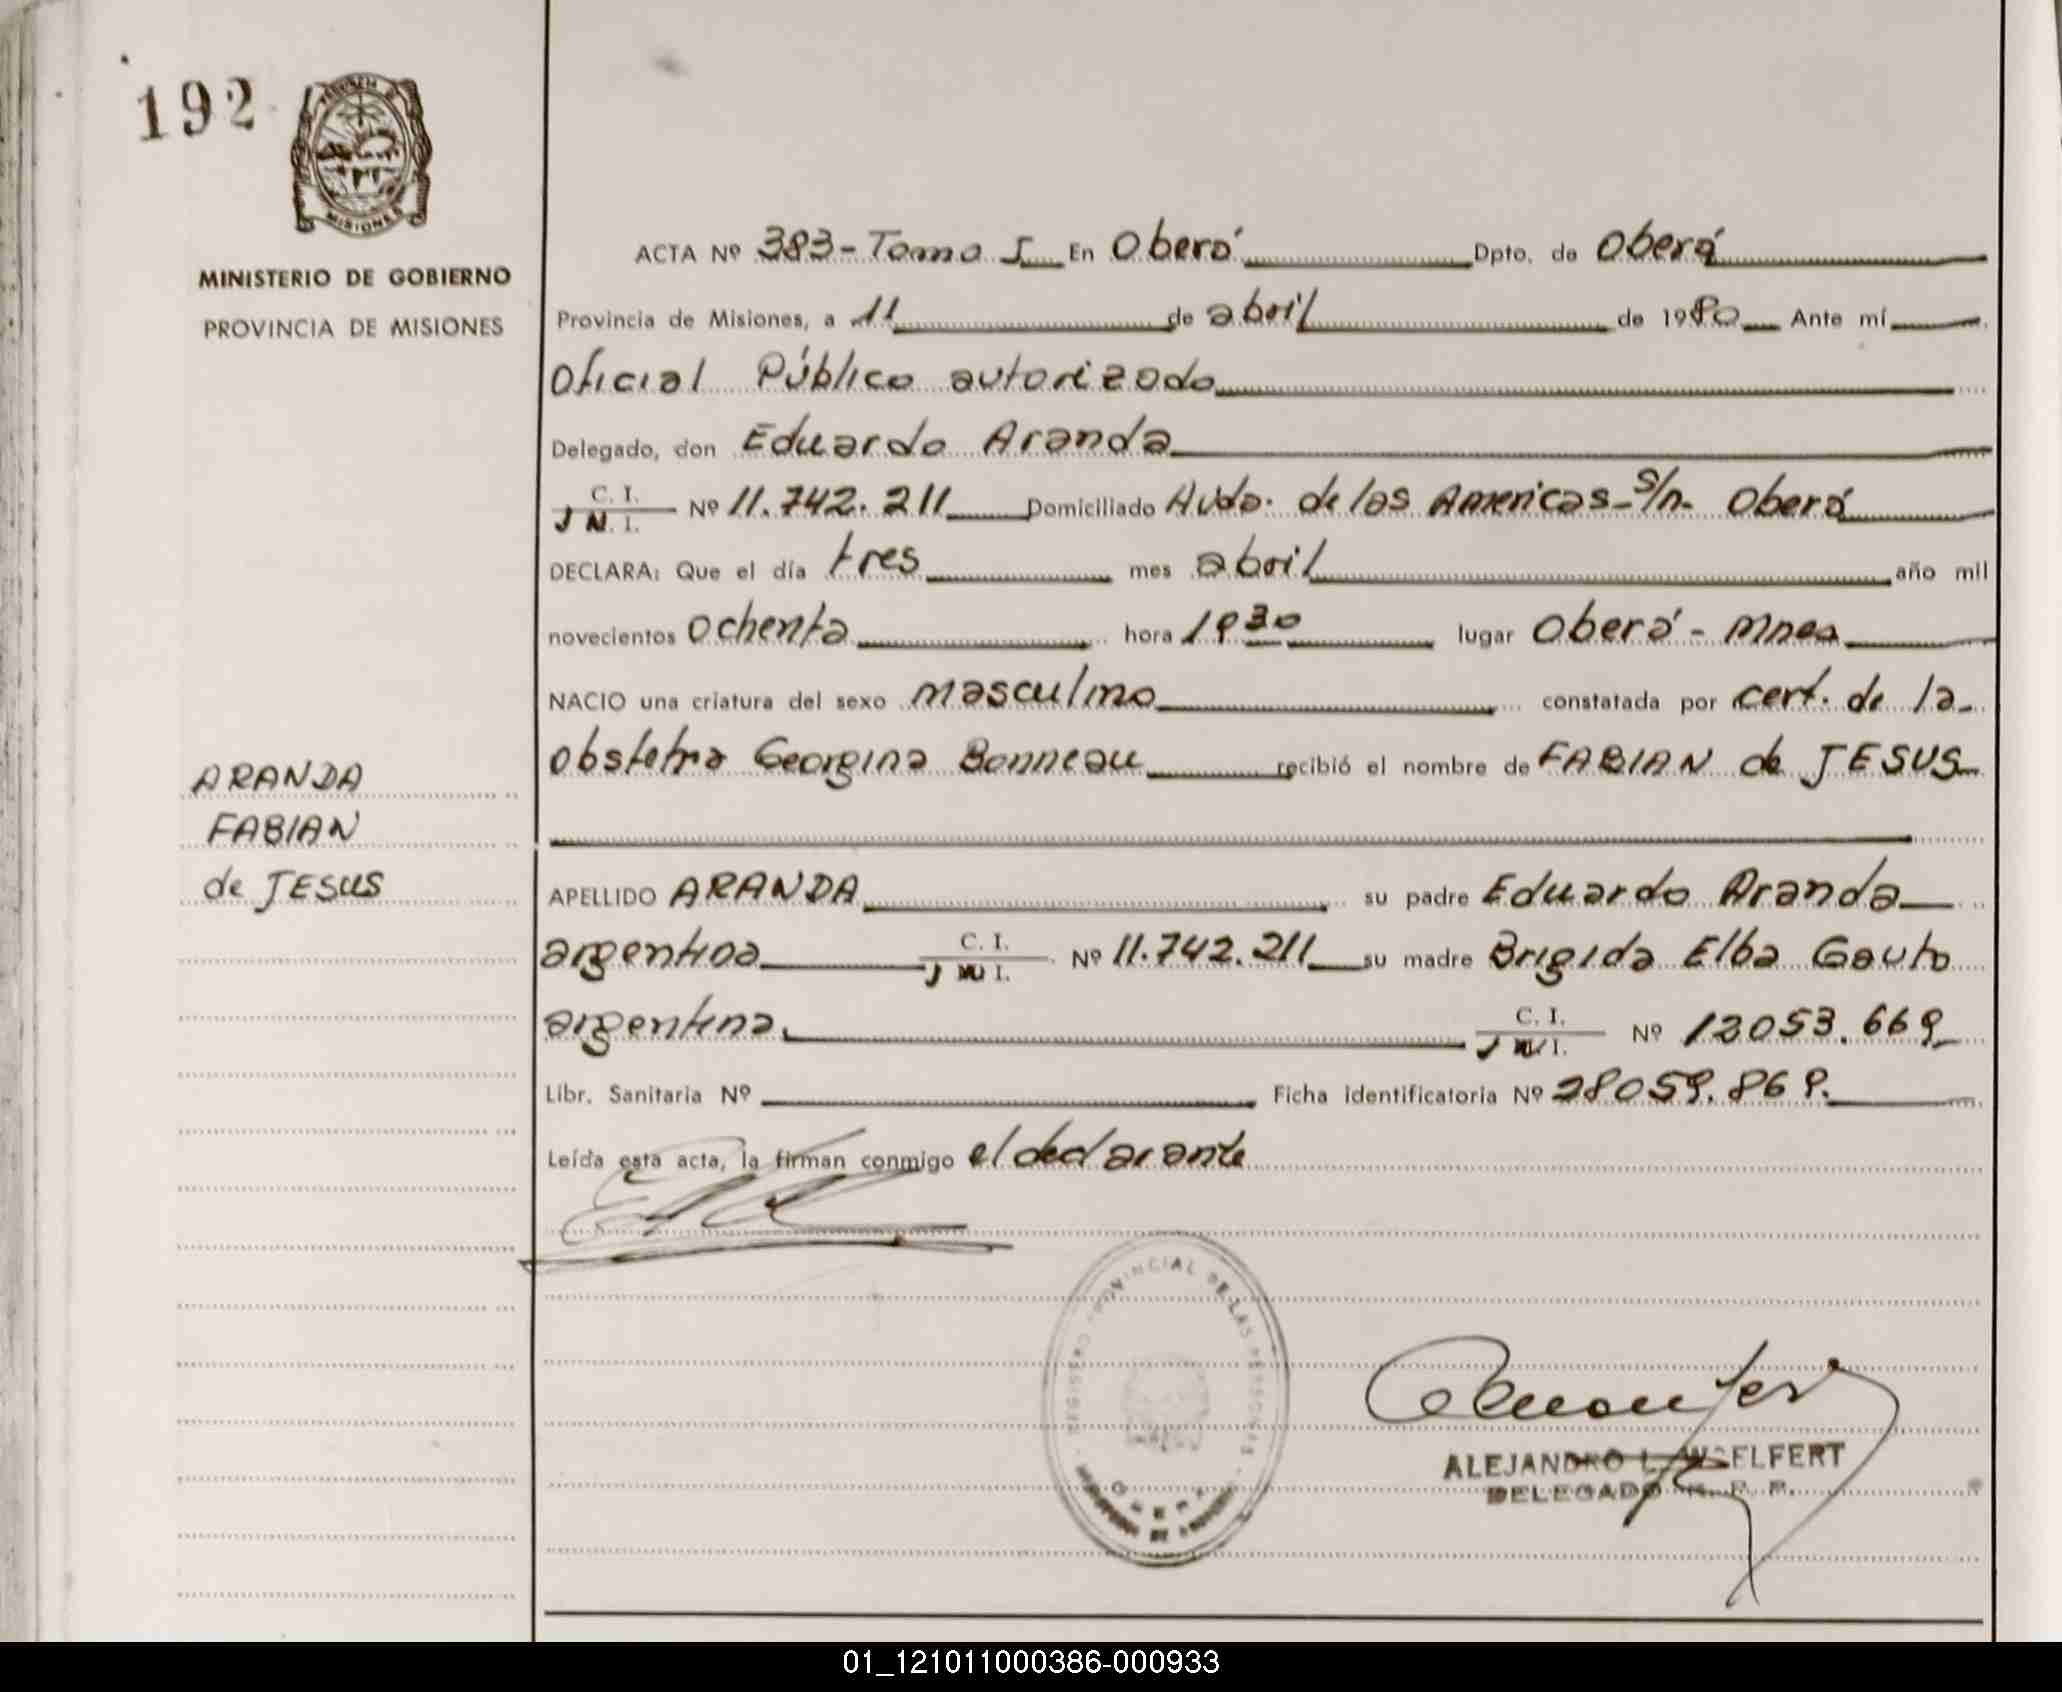 192
MISIONES
MINISTERIO DE GOBIERNO
PROVINCIA DE MISIONES
ARANDA
FABIAN
de JESUS
ACTA Nº 383 - Tomo I En Oberá Dpto. de Oberá
Provincia de Misiones, a 11 de abril de 1980 Ante mí
Oficial Público autorizado
Delegado, don Eduardo Aranda
C. I.
Nº 11.742.211 Domiciliado Avda. de las Americas - s/n - Oberá
DECLARA: Que el día tres mes abril año mil
novecientos ochenta hora lugar Oberá - Mnes
NACIO una criatura del sexo masculino constatada por cert. de la
obstetra Georgina Bonneau recibió el nombre de FABIAN de JESUS
APELLIDO ARANDA su padre Eduardo Aranda
argentino C. I. Nº 11.742.211 su madre Brigida Elba Gauto
argentina. C. I. Nº 12053.669
Libr. Sanitaria Nº Ficha identificatoria Nº 28059.869.
Leída esta acta, la firman conmigo el declarante
REGISTRO PROVINCIAL DE LAS PERSONAS
OBERA
ALEJANDRO L. WOELFERT
DELEGADO R. P. P.
01_121011000386-000933